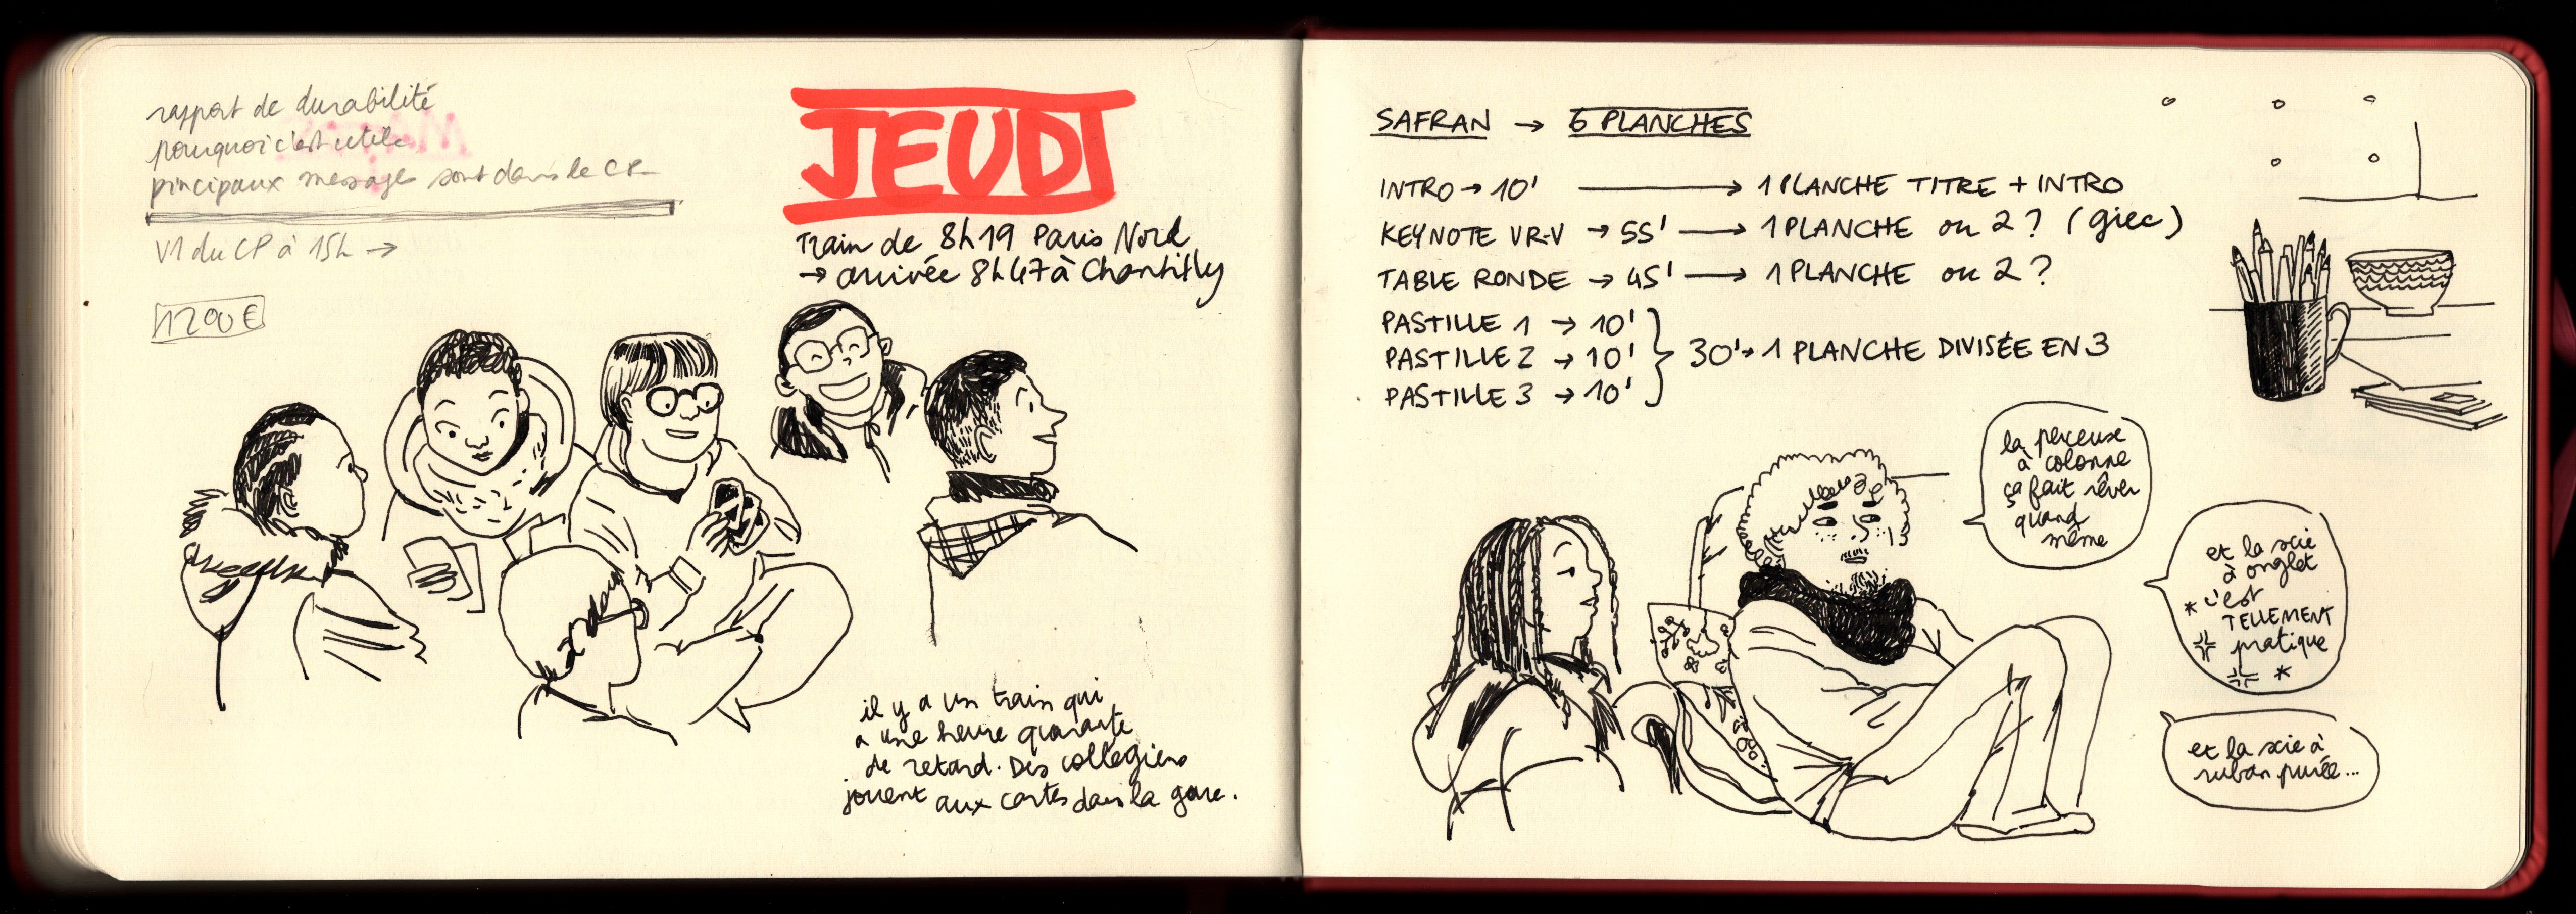 rapport de durabilité
pourquoi c'est utile
pincipaux messages sont dans le CP
V1 du CP à 15h →
1200€
JEUDI
Train de 8h19 Paris Nord
→ arrivée 8h47 à Chantilly
il y a un train qui
a une heure quarante
de retard. Des collégiens
jouent aux cartes dans la gare.
SAFRAN → 6 PLANCHES
INTRO → 10' → 1 PLANCHE TITRE + INTRO
KEYNOTE VR-V → 55' → 1 PLANCHE ou 2 ? (giec)
TABLE RONDE → 45' → 1 PLANCHE ou 2 ?
PASTILLE 1 → 10'
PASTILLE 2 → 10' } 30' → 1 PLANCHE DIVISÉE EN 3
PASTILLE 3 → 10'
la perceuse
à colonne
ça fait rêver
quand
même
et la scie
à onglet
* c'est
TELLEMENT
pratique
*
et la scie à
ruban purée...